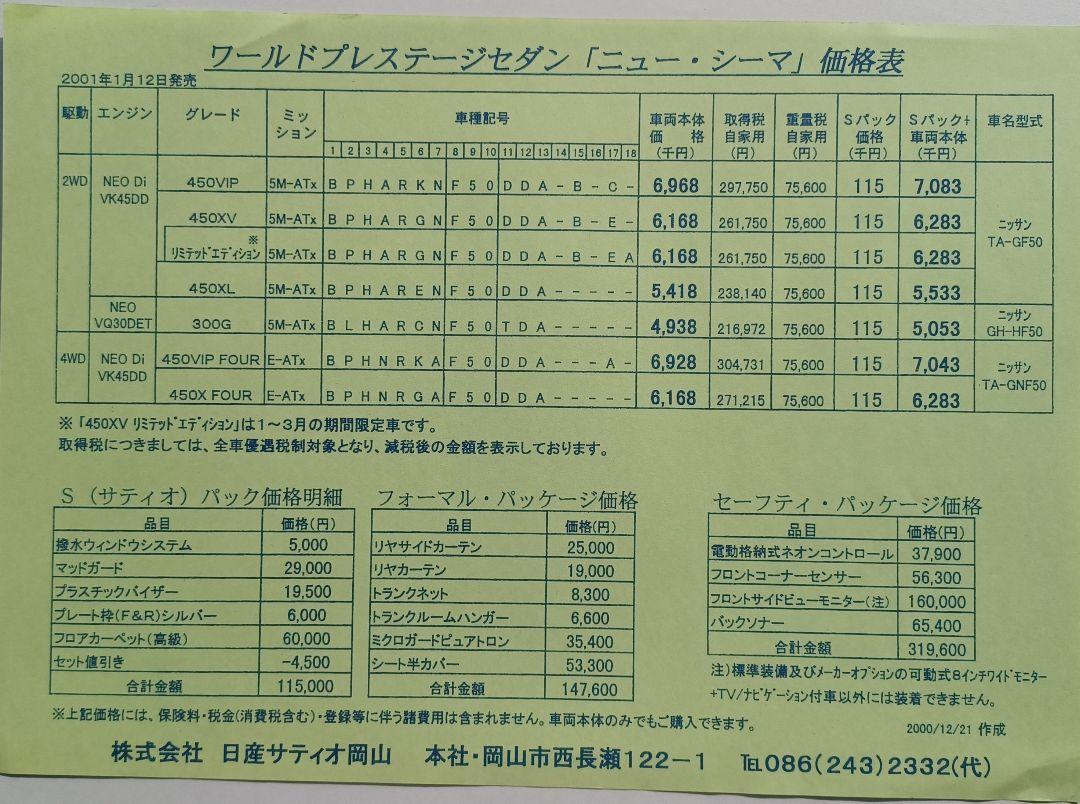 ワールドプレステージセダン「ニュー・シーマ」価格表
2001年1月12日発売
駆動 エンジン グレード ミッション 車種記号 車両本体価格(千円) 取得税自家用(円) 重量税自家用(円) Sパック価格(千円) Sパック+車両本体(千円) 車名型式
1 2 3 4 5 6 7 8 9 10 11 12 13 14 15 16 17 18
2WD NEO Di VK45DD 450VIP 5M-ATx B P H A R K N F 5 0 D D A - B - C - 6,968 297,750 75,600 115 7,083 ニッサン TA-GF50
450XV 5M-ATx B P H A R G N F 5 0 D D A - B - E - 6,168 261,750 75,600 115 6,283
※リミテッドエディション 5M-ATx B P H A R G N F 5 0 D D A - B - E A 6,168 261,750 75,600 115 6,283
450XL 5M-ATx B P H A R E N F 5 0 D D A - - - - - 5,418 238,140 75,600 115 5,533
NEO VQ30DET 300G 5M-ATx B L H A R C N F 5 0 T D A - - - - - 4,938 216,972 75,600 115 5,053 ニッサン GH-HF50
4WD NEO Di VK45DD 450VIP FOUR E-ATx B P H N R K A F 5 0 D D A - - - A - 6,928 304,731 75,600 115 7,043 ニッサン TA-GNF50
450X FOUR E-ATx B P H N R G A F 5 0 D D A - - - - - 6,168 271,215 75,600 115 6,283
※「450XV リミテッドエディション」は1～3月の期間限定車です。
取得税につきましては、全車優遇税制対象となり、減税後の金額を表示しております。
S（サティオ）パック価格明細
品目 価格(円)
撥水ウィンドウシステム 5,000
マッドガード 29,000
プラスチックバイザー 19,500
プレート枠(F&R)シルバー 6,000
フロアカーペット(高級) 60,000
セット値引き -4,500
合計金額 115,000
フォーマル・パッケージ価格
品目 価格(円)
リヤサイドカーテン 25,000
リヤカーテン 19,000
トランクネット 8,300
トランクルームハンガー 6,600
ミクロガードピュアトロン 35,400
シート半カバー 53,300
合計金額 147,600
セーフティ・パッケージ価格
品目 価格(円)
電動格納式ネオンコントロール 37,900
フロントコーナーセンサー 56,300
フロントサイドビューモニター(注) 160,000
バックソナー 65,400
合計金額 319,600
注)標準装備及びメーカーオプションの可動式8インチワイドモニター
+TV/ナビゲーション付車以外には装着できません。
※上記価格には、保険料・税金(消費税含む)・登録等に伴う諸費用は含まれません。車両本体のみでもご購入できます。
2000/12/21 作成
株式会社 日産サティオ岡山 本社・岡山市西長瀬122-1 TEL086(243)2332(代)